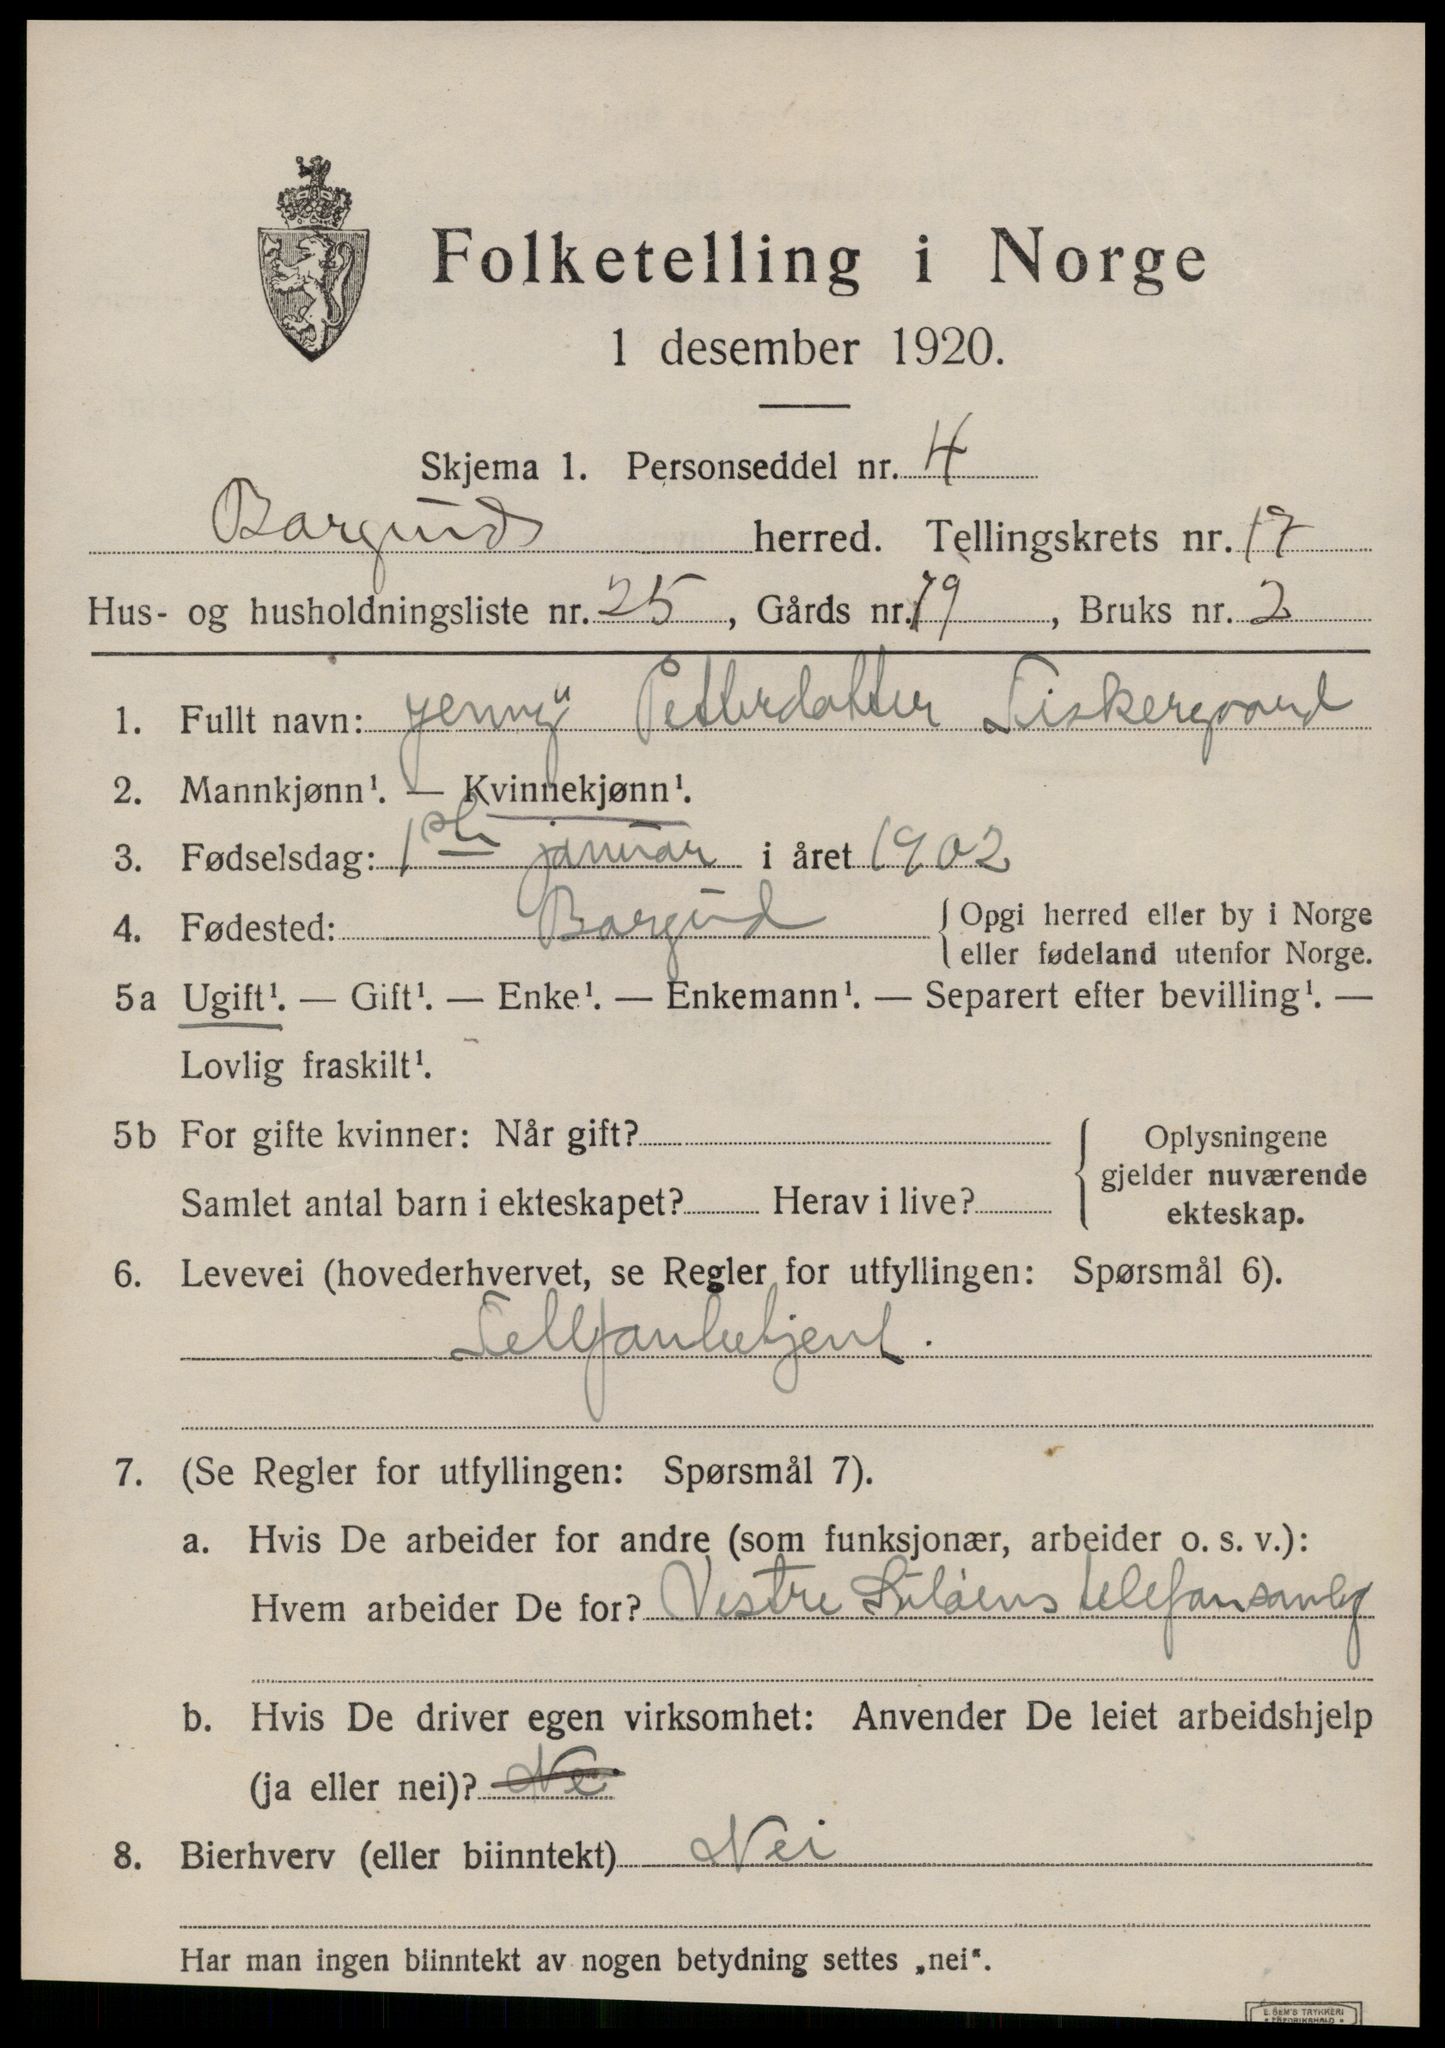 Folketelling i Norge
1 desember 1920.
Skjema 1. Personseddel nr. 4
Borgunds herred. Tellingskrets nr. 17
Hus- og husholdningsliste nr. 25, Gårds nr. 79, Bruks nr. 2
1. Fullt navn: Jenny Petterdatter Fiskergaard
2. Mannkjønn¹. — Kvinnekjønn¹.
3. Fødselsdag: 1ste januar i året 1902
4. Fødested: Borgund { Opgi herred eller by i Norge
eller fødeland utenfor Norge.
5a Ugift¹. — Gift¹. — Enke¹. — Enkemann¹. — Separert efter bevilling¹. —
Lovlig fraskilt¹.
5b For gifte kvinner: Når gift? { Oplysningene
gjelder nuværende
Samlet antal barn i ekteskapet? Herav i live? ekteskap.
6. Levevei (hovederhvervet, se Regler for utfyllingen: Spørsmål 6).
7. (Se Regler for utfyllingen: Spørsmål 7).
a. Hvis De arbeider for andre (som funksjonær, arbeider o. s. v.):
Hvem arbeider De for? Vestre Suløens telefonsamlg
b. Hvis De driver egen virksomhet: Anvender De leiet arbeidshjelp
(ja eller nei)? Ne
8. Bierhverv (eller biinntekt) Nei
Har man ingen biinntekt av nogen betydning settes „nei“.
E. SEM'S TRYKKERI
FREDRIKSHALD